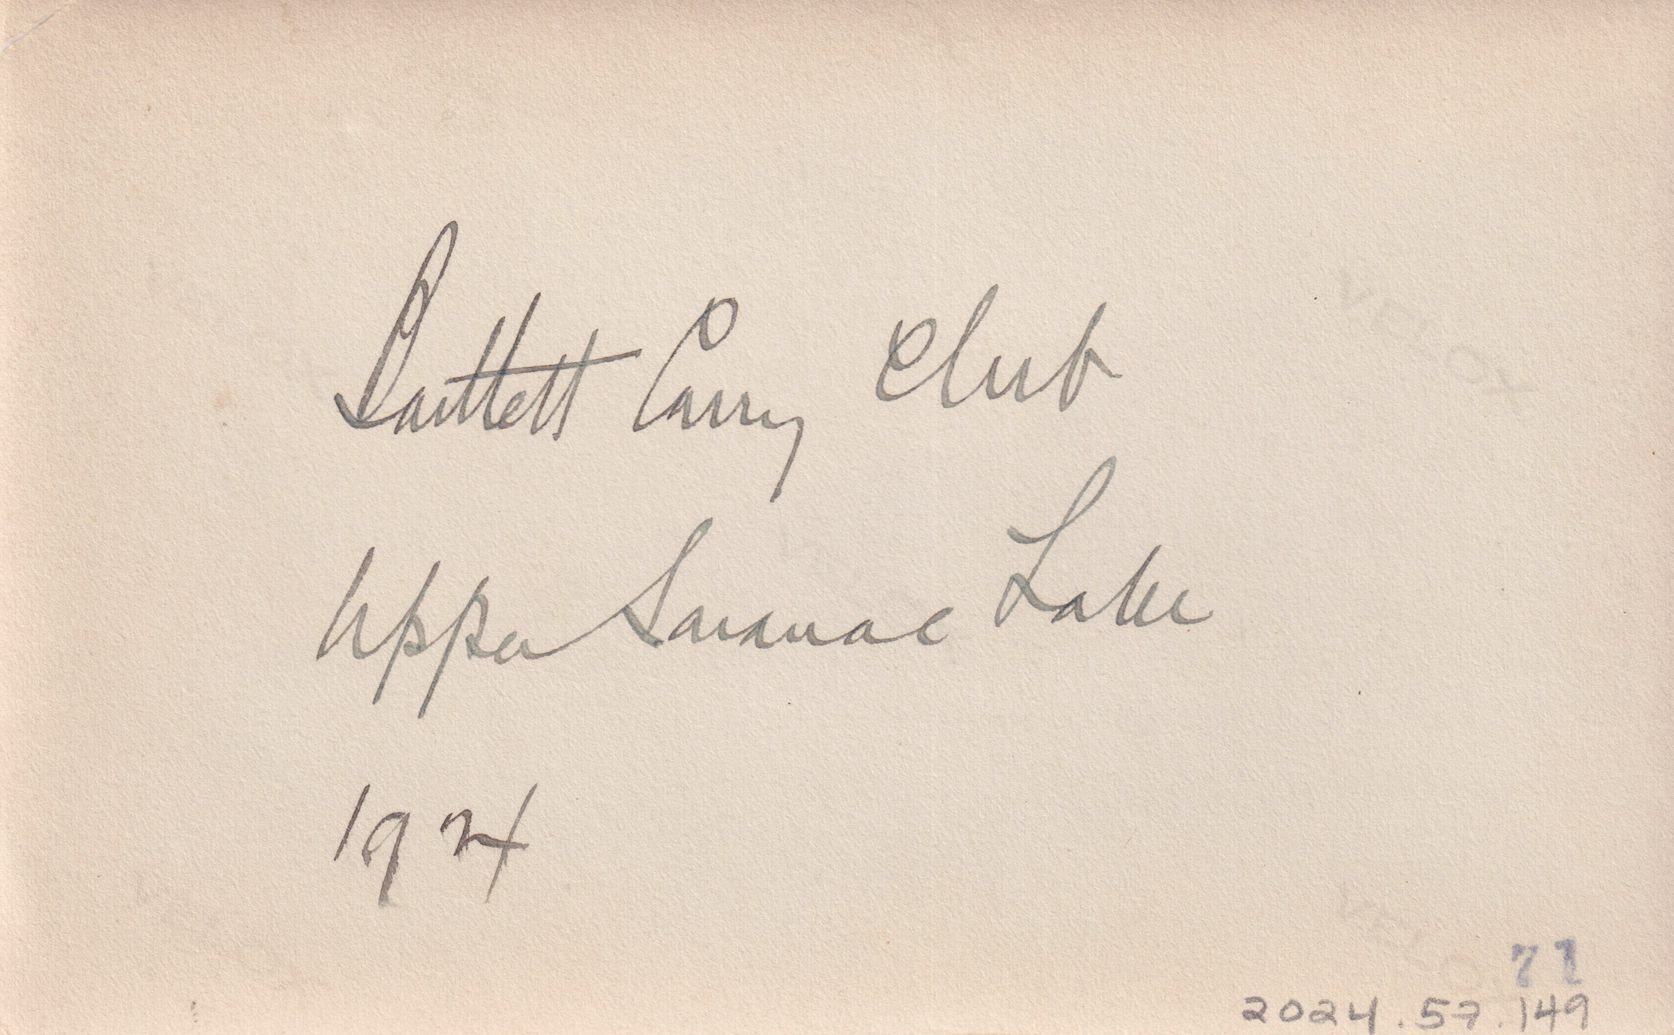 Bartlett Carry Club
Upper Saranac Lake
1924
71
2024.57.149